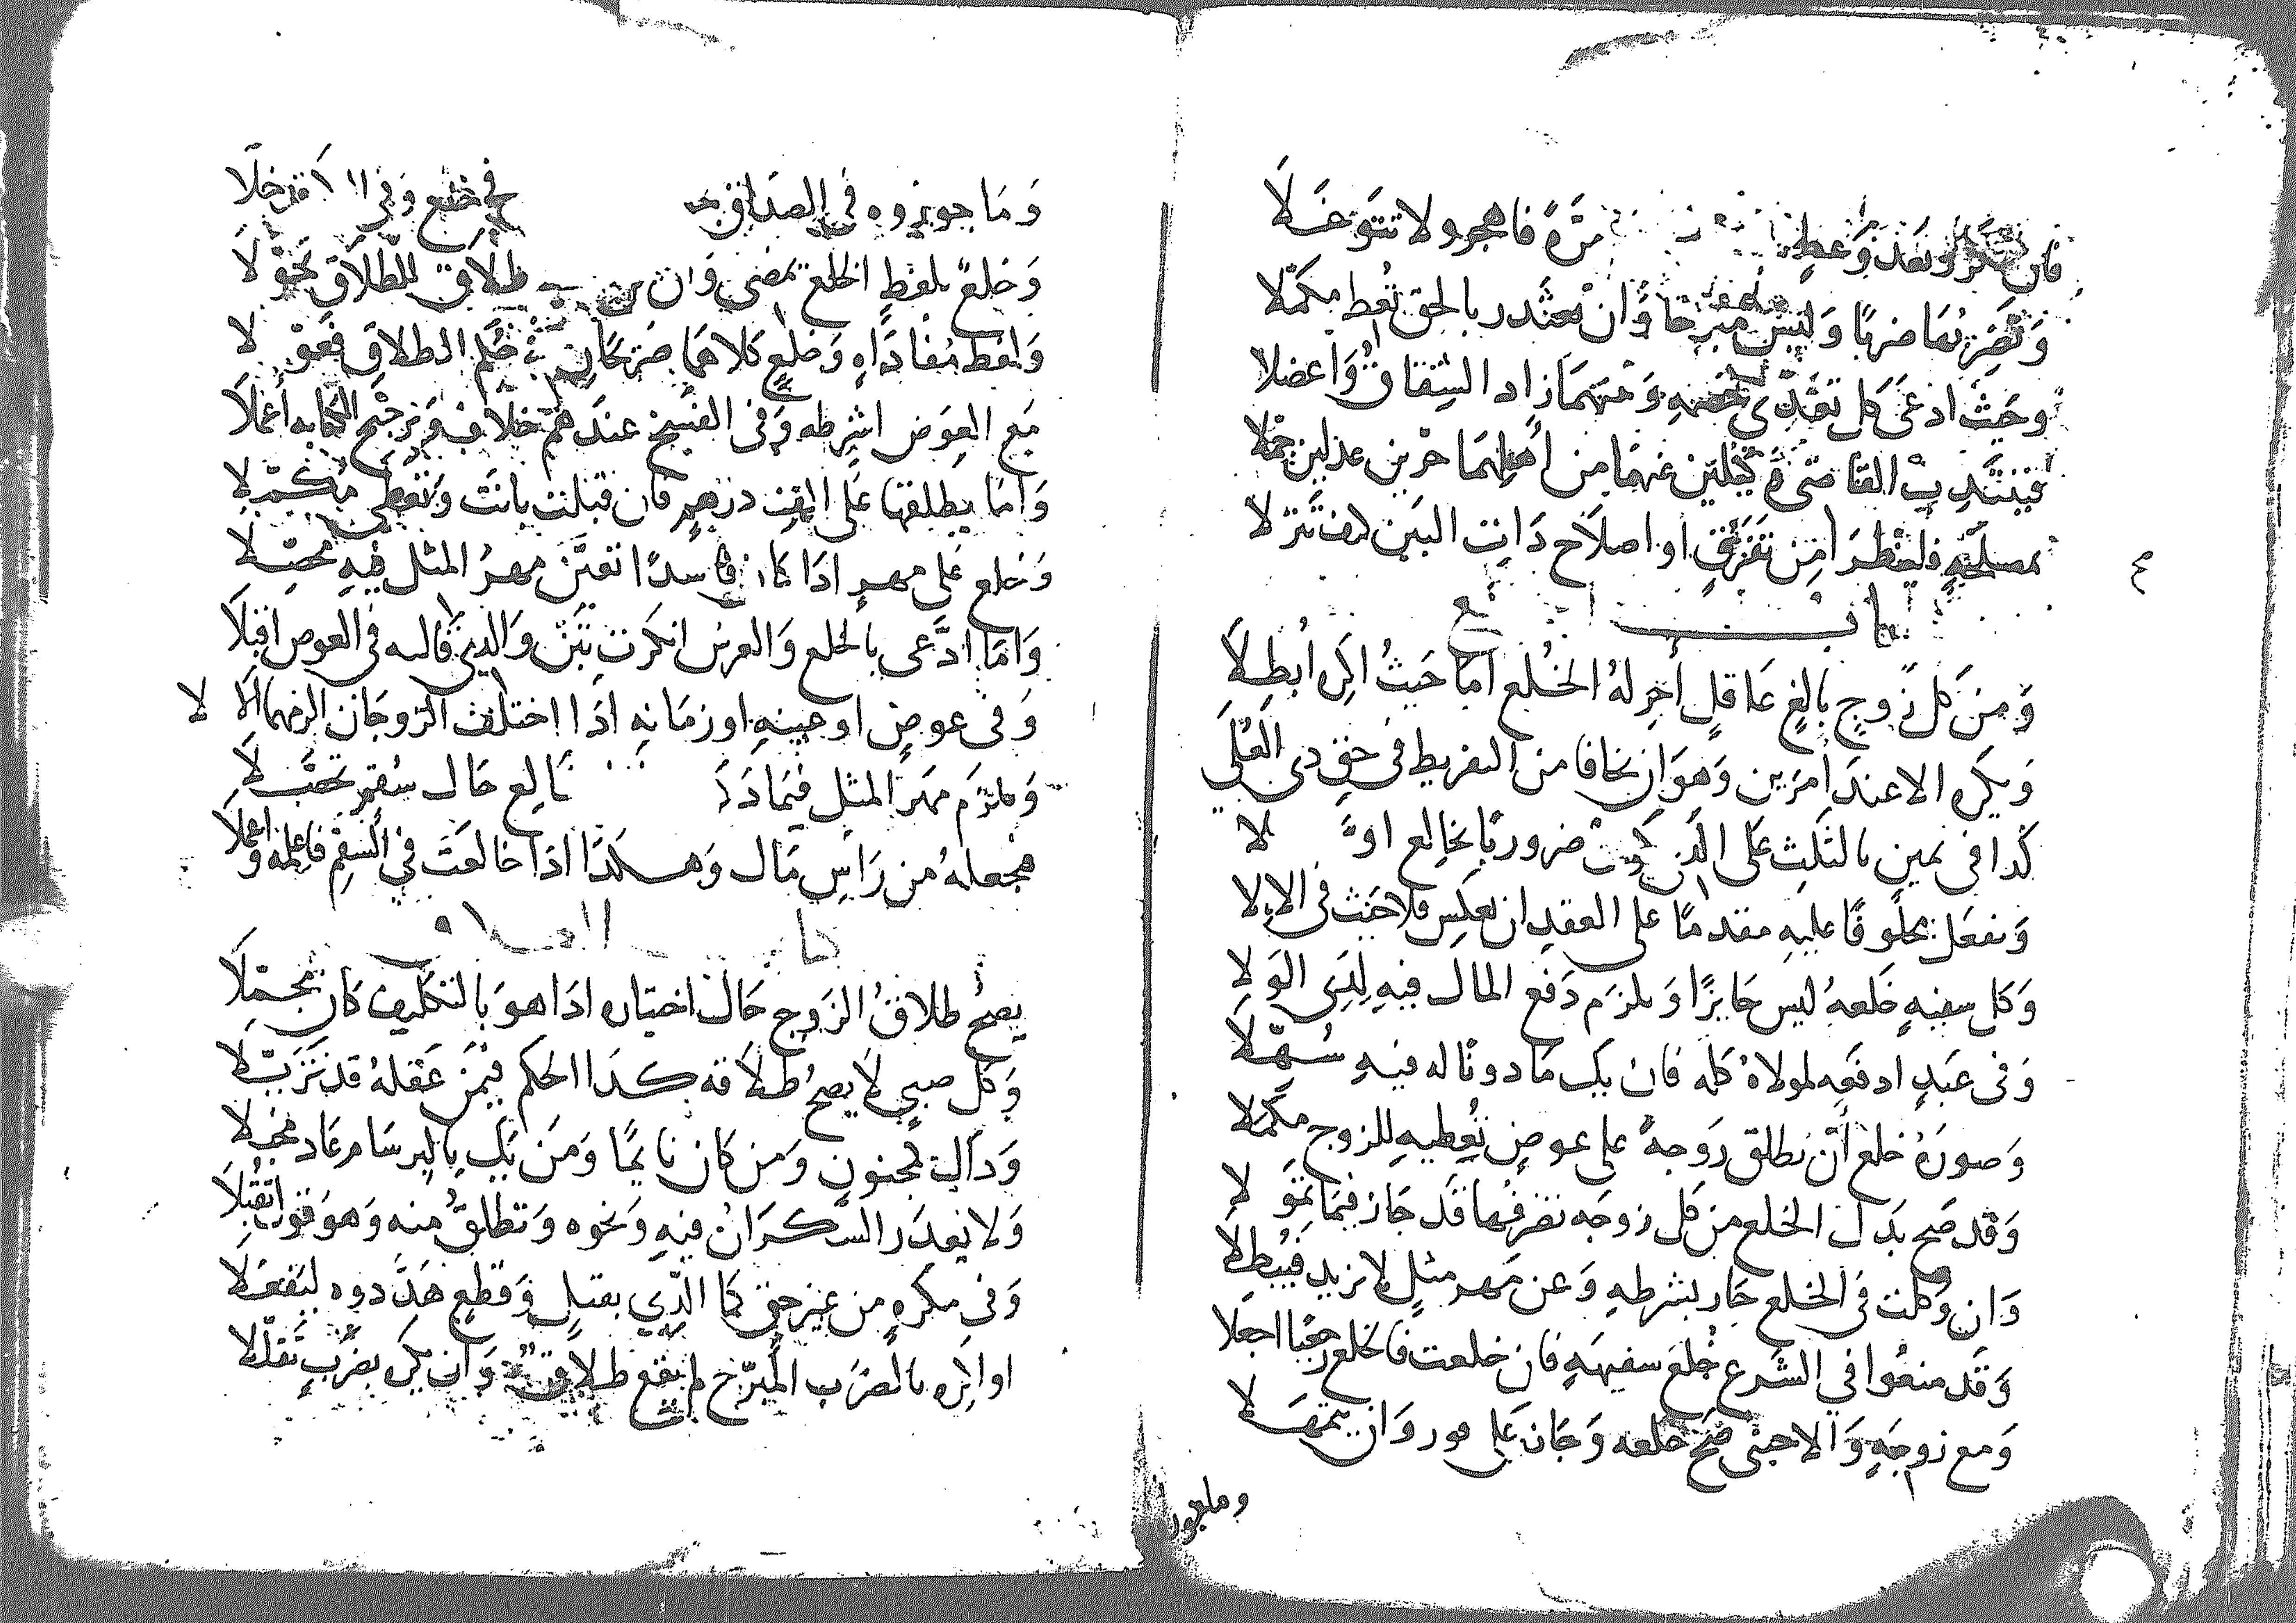 فان تتكرر بعد وعظ مرة فاهجرو لا تتوغلا
وتضربها ضربا وليس مبرحا وان تعتذر بالحق تعط مكملا
وحيث ادعى كل تعدي خصمه ومنهما زاد الشقاق واعضلا
فينتدب القاضي وكيلين عنهما من اهلهما حرين عدلين جملا
بمصلحة فلينظرا من تفرق او اصلاح ذات البين
باب الخلع
ومن كل زوج بالغ عاقل اجز له الخلع اما حيث اكره ابطلا
ويكره الا عند امرين وهو ان يخافا من التفريط في حق ذي العلي
كذا في يمين بالثلث على الذي ضروريا يخالع اولا
ونفعل محلوفا عليه مقدما على العقد ان تعكس فلا حنث في الالا
وكل سفيه خلعه ليس جايزا ويلزم دفع المال فيه لذي الولا
وفي عبد ادفعه لمولاه كله فان يك ماذونا له فيه سهلا
وصورة خلع أن نطلق زوجة على عوض تعطيه للزوج مكملا
وقد صح بذل الخلع من كل زوجه تصرفها قد جاز فيما تمولا
وان وكلت في الخلع جاز بشرطه وعن مهر مثل لا نزيد فيبطلا
وقد منعوا في الشرع خلع سفيهه فان خلعت فالخلع رجعيا اجعلا
ومع زوجة والاجنبي صح خلعه وجاز على فور وان يتمهلا
وما جوزوه
وما جوزوه في الصداق في خلع وفي
وخلع بلفظ الخلع تمضي وان طلاق للطلاق تحولا
ولفظ مفاداه وخلع كلاهما صريحان في حكم الطلاق فعولا
مع العوض اشرطه وفي الفسخ عندهم خلاف وترجيح الكنايه أعملا
واما يطلقها على الف درهم فان قبلت بانت وتعطي مكملا
وخلع على مهر اذا كان فاسدا تعين مهر المثل فيه محصلا
واما ادعى بالخلع والعرس انكرت تبن والذي قالته في العوض اقبلا
وفي عوض او عينه او زمانه اذا اختلف الزوجان الزمهما الا لا
ويلزم مهر المثل فيما خالع حال سقم تحصلا
فجعله من راس مال وهكذا اذا خالعت في السقم فاعلمه واعملا
باب الطلاق
يصح طلاق الزوج حال اختياره اذا هو بالتكليف كان محملا
وكل صبي لا يصح طلاقه كذا الحكم فيمن عقله قد تزيلا
وذاك كمجنون ومن كان نايما ومن يك بالبرسام عاد مخبلا
ولا يعذر السكران فيه ونحوه وتطلق منه وهو قول تقبلا
وفي مكره من غير حق كما الذي بقتل وقطع هددوه ليفعلا
او اكره بالضرب المبرح لم يقع طلاق وان يكره بضرب تقللا